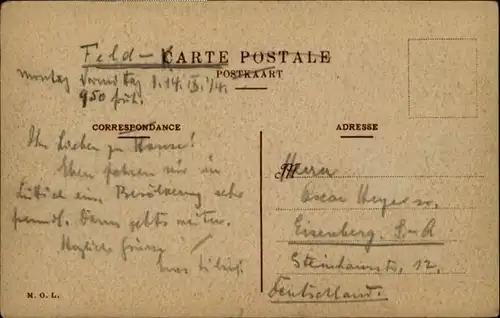 Feld-
CARTE POSTALE
POSTKAART
Montag Vormittag 14. IX. 14.
9⁵⁰ früh.
CORRESPONDANCE
ADRESSE
Ihr Lieben zu Hause!
Eben fahren wir in
Lüttich ein. Bevölkerung sehr
freundl. Dann gehts weiter.
Herzliche Grüsse
Euer
Herrn
Oscar Meyer sen.
Eisenberg. S.-A
Steinhaustr. 12.
Deutschland.
M. O. L.